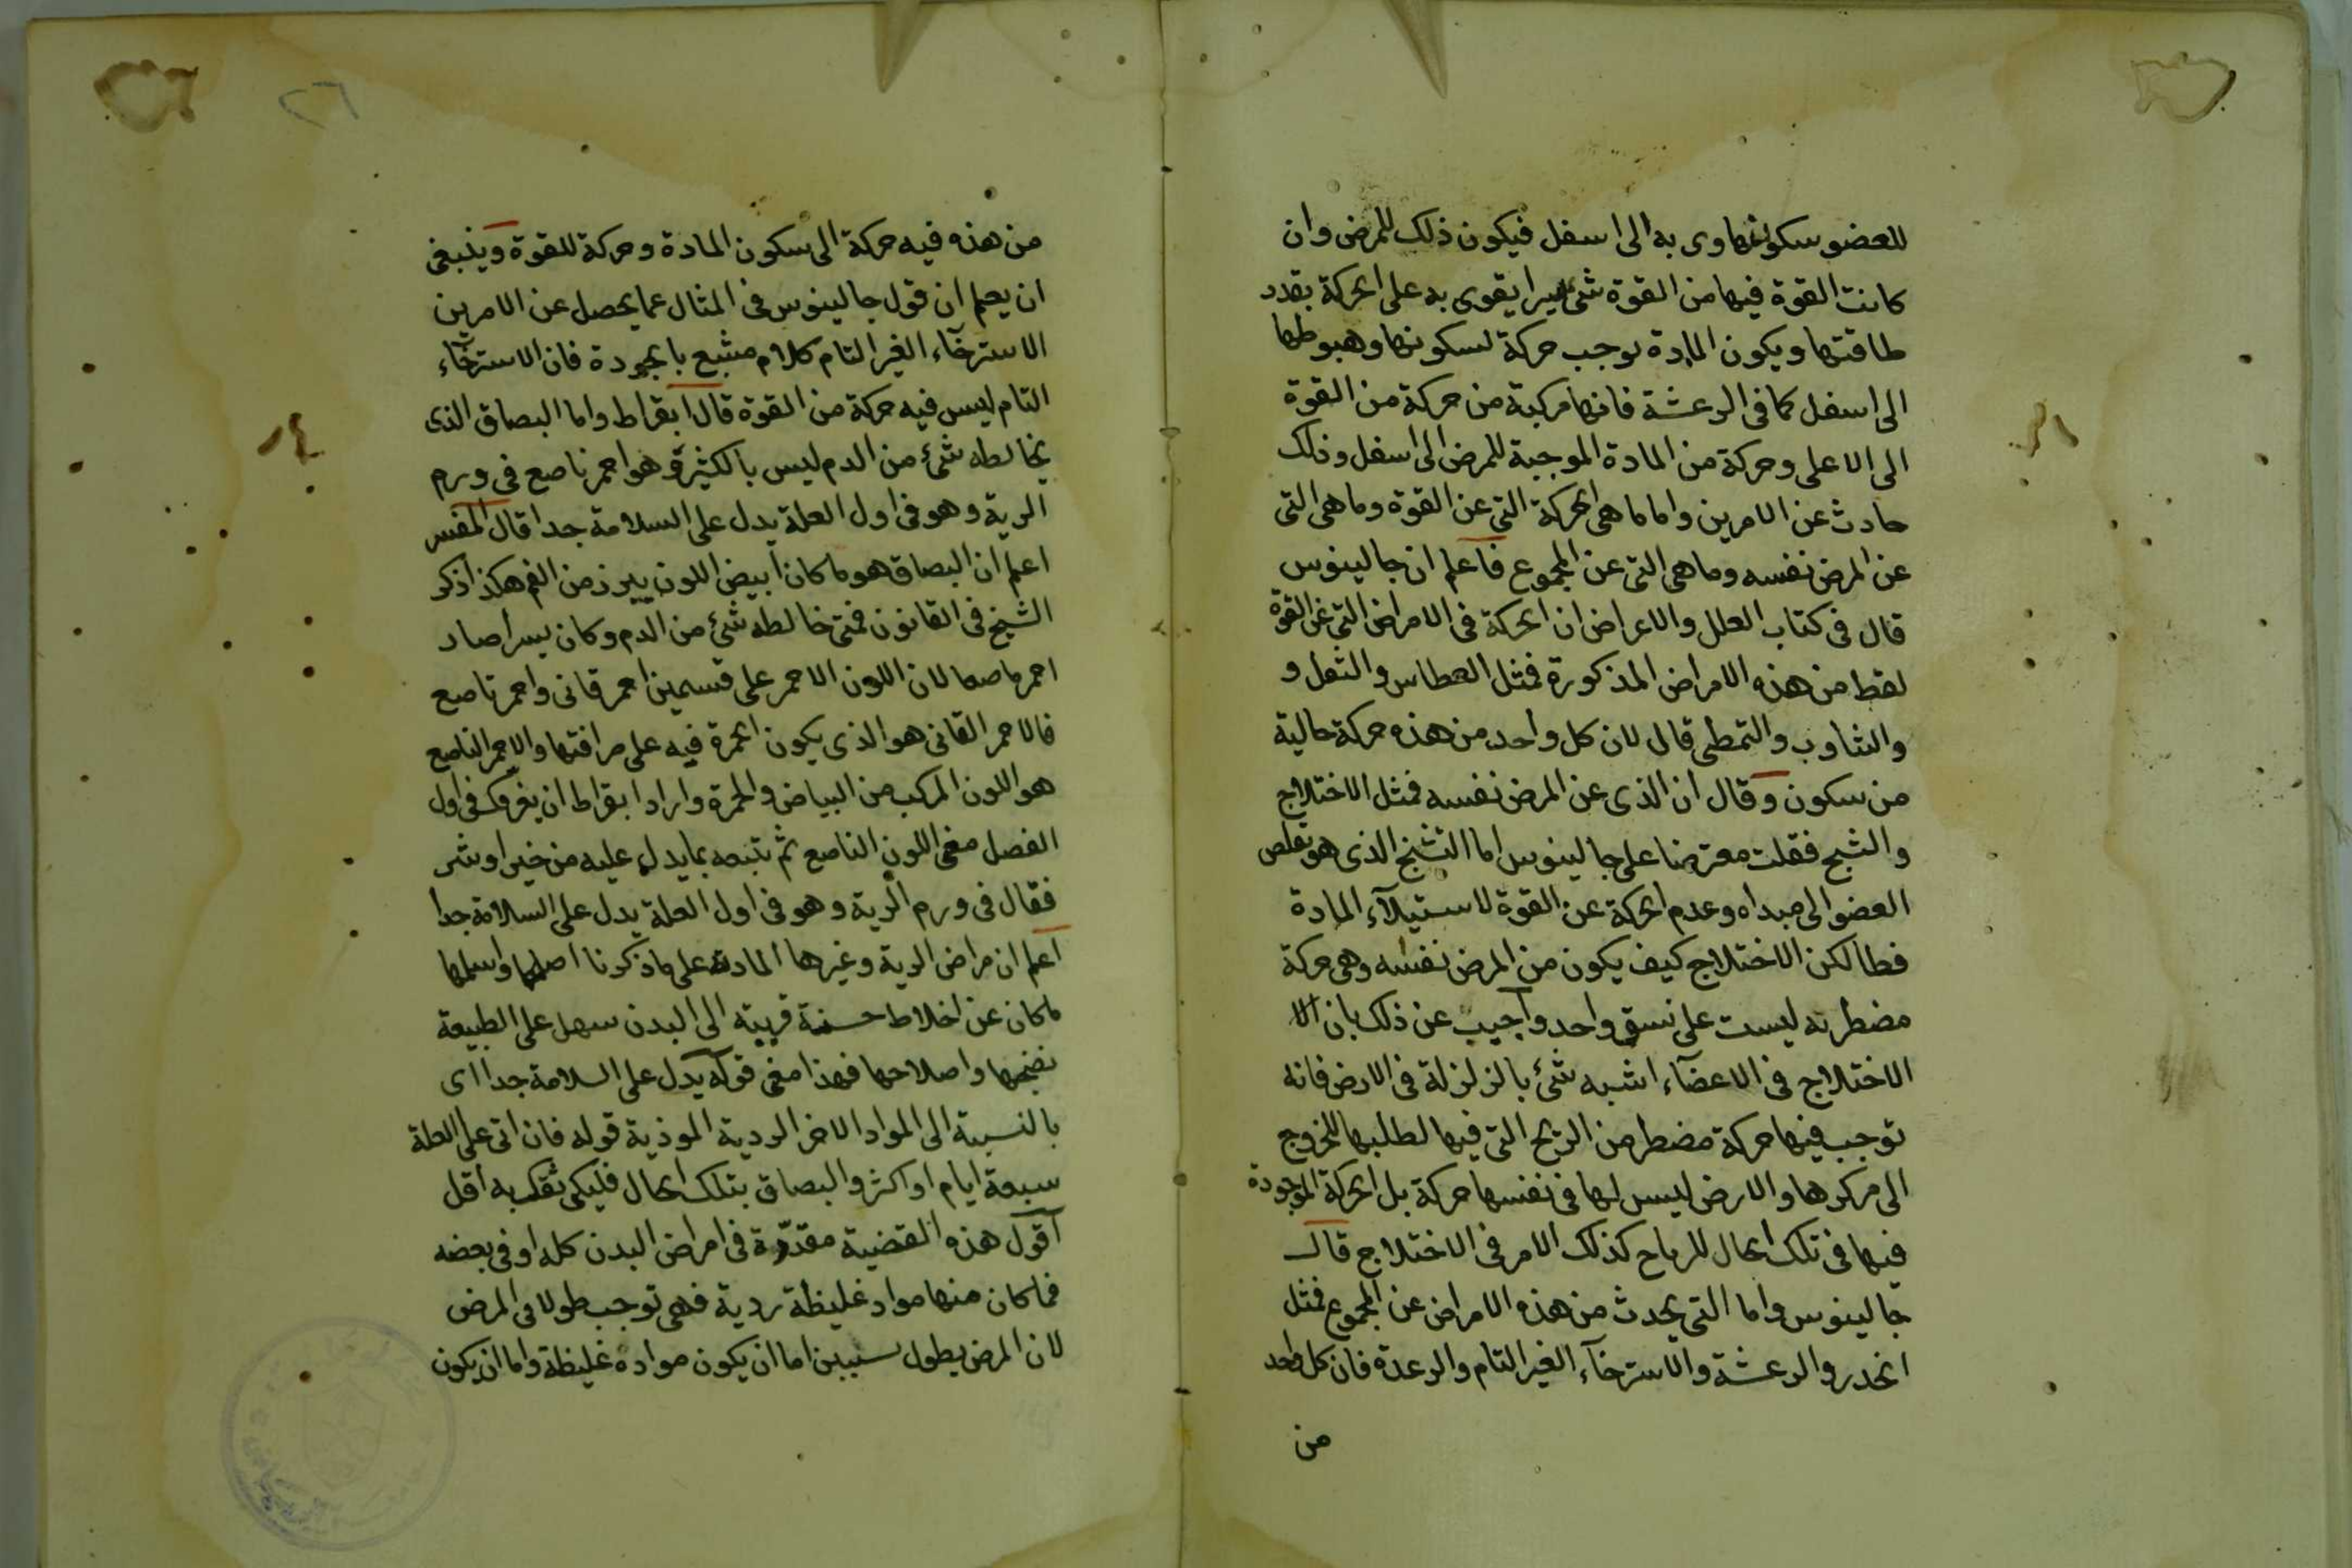 للعضو سكونها وى به الى اسفل فيكون ذلك للمرض وان
كانت القوة فيها من القوة شئ يسيرا يقوى به على الحركة بقدر
طاقتها ويكون المادة توجب حركة لسكونها وهبوطها
الى اسفل كما فى الرعشة فانها مركبة من حركة من القوة
الى الاعلى وحركة من المادة الموجبة للمرض الى اسفل وذلك
حادث عن الامرين واما ما هى الحركة التى عن القوة وما هى التى
عن المرض نفسه وما هى التى عن المجموع فاعلم ان جالينوس
قال فى كتاب العلل والاعراض ان الحركة فى الامراض التى عن القوة
لقط من هذه الامراض المذكورة فمثل العطاس والتعل و
والتثاوب والتمطى قال لان كل واحد من هذه حركة حالية
من سكون وقال ان الذى عن المرض نفسه فمثل الاختلاج
والشبح فقلت معترضا على جالينوس اما التشنج الذى هو تقلص
العضو الى مبداه وعدم الحركة عن القوة لاستيلآء المادة
فطا لكن الاختلاج كيف يكون من المرض نفسه وهى حركة
مضطربه ليست على نسق واحد واجيب عن ذلك بان الا
الاختلاج فى الاعضآء اشبه شئ بالزلزلة فى الارض فانه
توجب فيها حركة مضطر من الريح التى فيها لطلبها للخروج
الى مركزها والارض ليس لها فى نفسها حركة بل الحركة الموجودة
فيها فى تلك الحال للرياح كذلك الامر فى الاختلاج قال
جالينوس واما التى يحدث من هذه الامراض عن المجموع فمثل
الخدر والرعشة والاسترخآء الغير التام والرعدة فان كل واحد
من
٢٦
من هذه فيه حركة الى سكون المادة وحركة للقوة وينبغى
ان يعلم ان قول جالينوس فى المثال عما يحصل عن الامرين
الاسترخآء الغير التام كلام مشبع بالجودة فان الاسترخآء
التام ليس فيه حركة من القوة قال ابقراط واما البصاق الذى
يخالطه شئ من الدم ليس بالكثير وهو احمر ناصع فى ورم
الرية وهو فى اول العلة يدل على السلامة جدا قال المفسر
اعلم ان البصاق هو ما كان ابيض اللون يبرز من الفم هكذا ذكر
الشيخ فى القانون فمتى خالطه شئ من الدم وكان يسيرا صار
احمر ناصعا لان اللون الاحمر على قسمين احمر قانى واحمر ناصع
فالاحمر القانى هو الذى يكون الحمرة فيه على صرافتها والاحمر الناصع
هو اللون المركب من البياض والحمرة واراد ابقراط ان يعرفك فى اول
الفصل معنى اللون الناصع ثم يتبعه بما يدل عليه من خير او شر
فقال فى ورم الرية وهو فى اول العلة يدل على السلامة جدا
اعلم ان مراض الرية وغيرها المادة على ما ذكرنا اصلحها واسلمها
ما كان عن اخلاط حسنة قريبة الى البدن سهل على الطبيعة
نضجها واصلاحها فهذا معنى قوله يدل على السلامة جدا اى
بالنسبة الى المواد الاخر الردية الموذية قوله فان اتى على العلة
سبعة ايام او اكثر والبصاق بتلك الحال فليكن ثقتك به اقل
اقول هذه القضية مقدرة فى امراض البدن كله او فى بعضه
فما كان منها مواد غليظة ردية فهى توجب طولا فى المرض
لان المرض يطول لسببين اما ان يكون مواده غليظة واما ان يكون